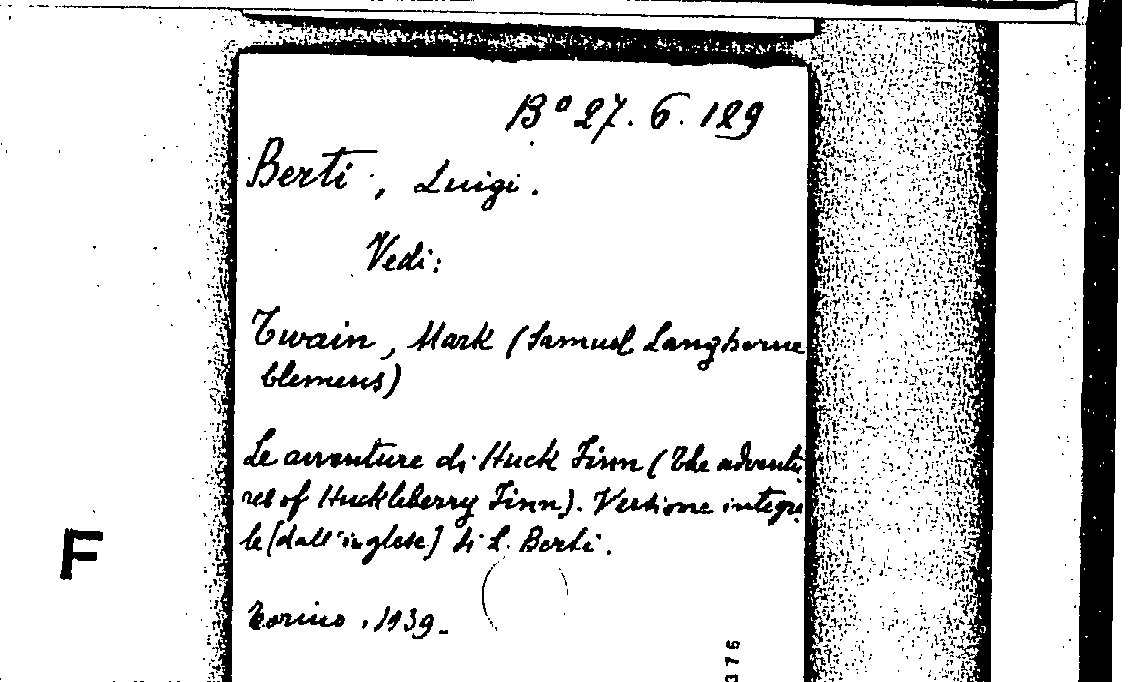 B° 27. 6. 129
Berti, Luigi.
Vedi:
Twain, Mark (Samuel Langhorne
Clemens)
Le avventure di Huck Finn (The adventu
res of Huckleberry Finn). Versione integra
le [dall'inglese] di L. Berti.
F
Torino, 1939.
376